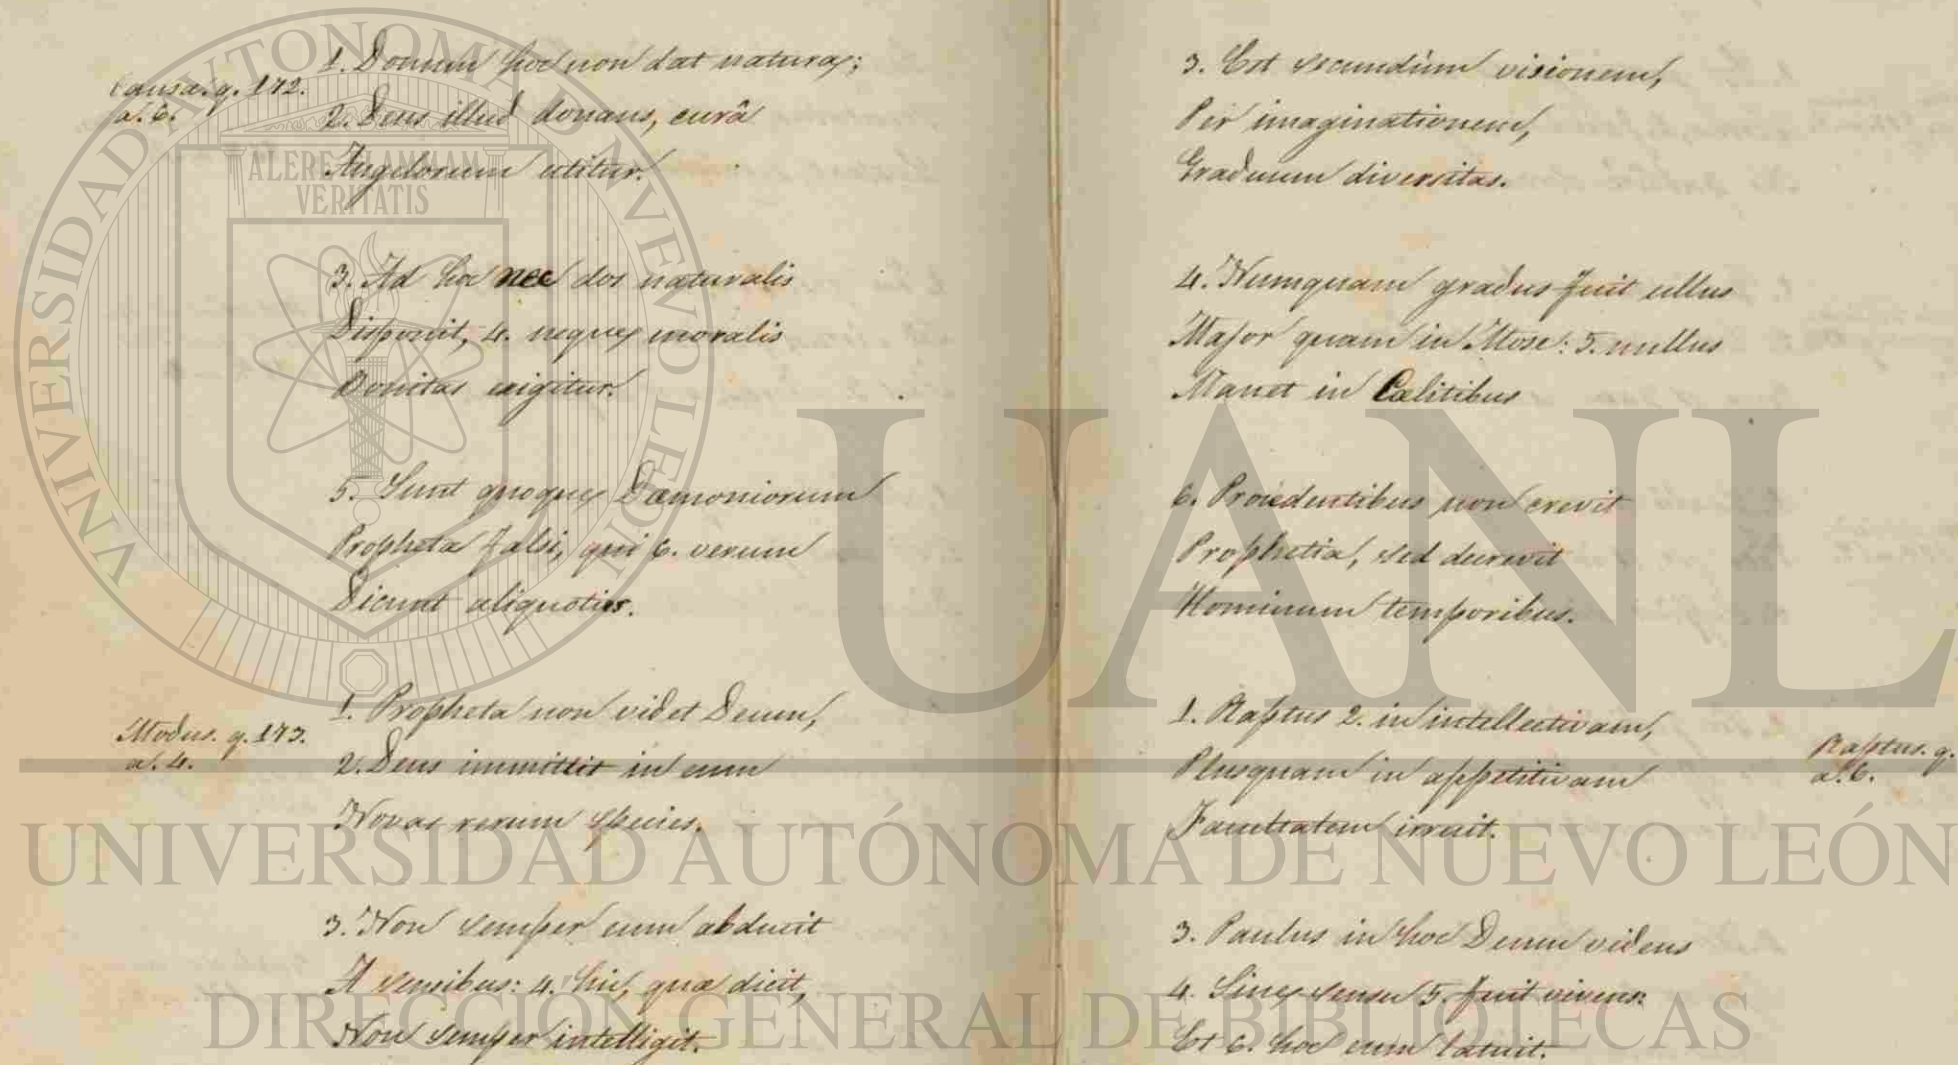 Causa. q. 172.
a. 6.
1. Donum hoc non dat natura;
2. Deus illud donans, curâ
Angelorum utitur.
3. Ad hoc nec dos naturalis
Disponit, 4. neque moralis
Bonitas exigitur.
5. Sunt quoque Dæmoniorum
Propheta falsi, qui 6. verum
Dicunt aliquoties.
Modus. q. 173.
a. 4.
1. Propheta non videt Deum,
2. Deus immittit in eum
Novas rerum species.
3. Non semper eum abducit
A sensibus: 4. hic, quæ dicit,
Non semper intelligit.
3. Est secundum visionem,
Per imaginationem,
Graduum diversitas.
4. Numquam gradus fuit ullus
Major quam in Mose: 5. nullus
Manet in Cœlitibus
6. Procedentibus non crevit
Prophetia, sed decrevit
Hominum temporibus.
1. Raptus 2. in intellectivam,
Plusquam in appetitivam
Facultatem irruit.
Raptus. q.
a. 6.
3. Paulus in hoc Deum videns
4. Sine sensu 5. fuit vivens:
Et 6. hoc eum latuit.
UNIVERSIDAD AUTONOMA DE NUEVO LEON
ALERE FLAMMAM
VERITATIS
UANL
UNIVERSIDAD AUTÓNOMA DE NUEVO LEÓN
DIRECCIÓN GENERAL DE BIBLIOTECAS